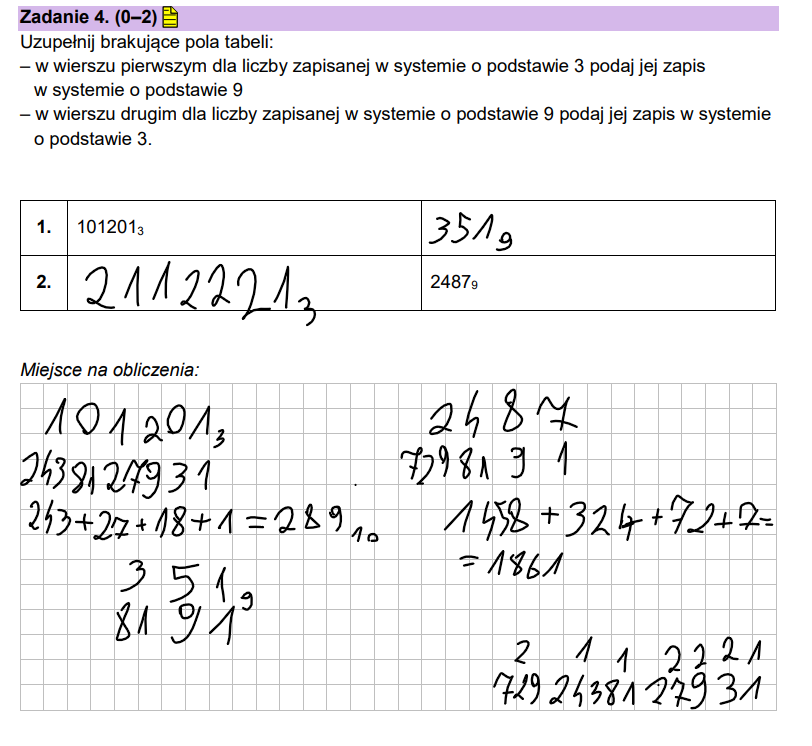 Zadanie 4. (0–2)
Uzupełnij brakujące pola tabeli:
– w wierszu pierwszym dla liczby zapisanej w systemie o podstawie 3 podaj jej zapis
w systemie o podstawie 9
– w wierszu drugim dla liczby zapisanej w systemie o podstawie 9 podaj jej zapis w systemie
o podstawie 3.
1. 101201₃ 351₉
2. 2112221₃ 2487₉
Miejsce na obliczenia:
101201₃
243 81 27 9 3 1
243+27+18+1=289₁₀
351₉
81 9 1
2487
729 81 9 1
1458+324+72+7=
=1861
2 1 1 2 2 2 1
729 243 81 27 9 3 1